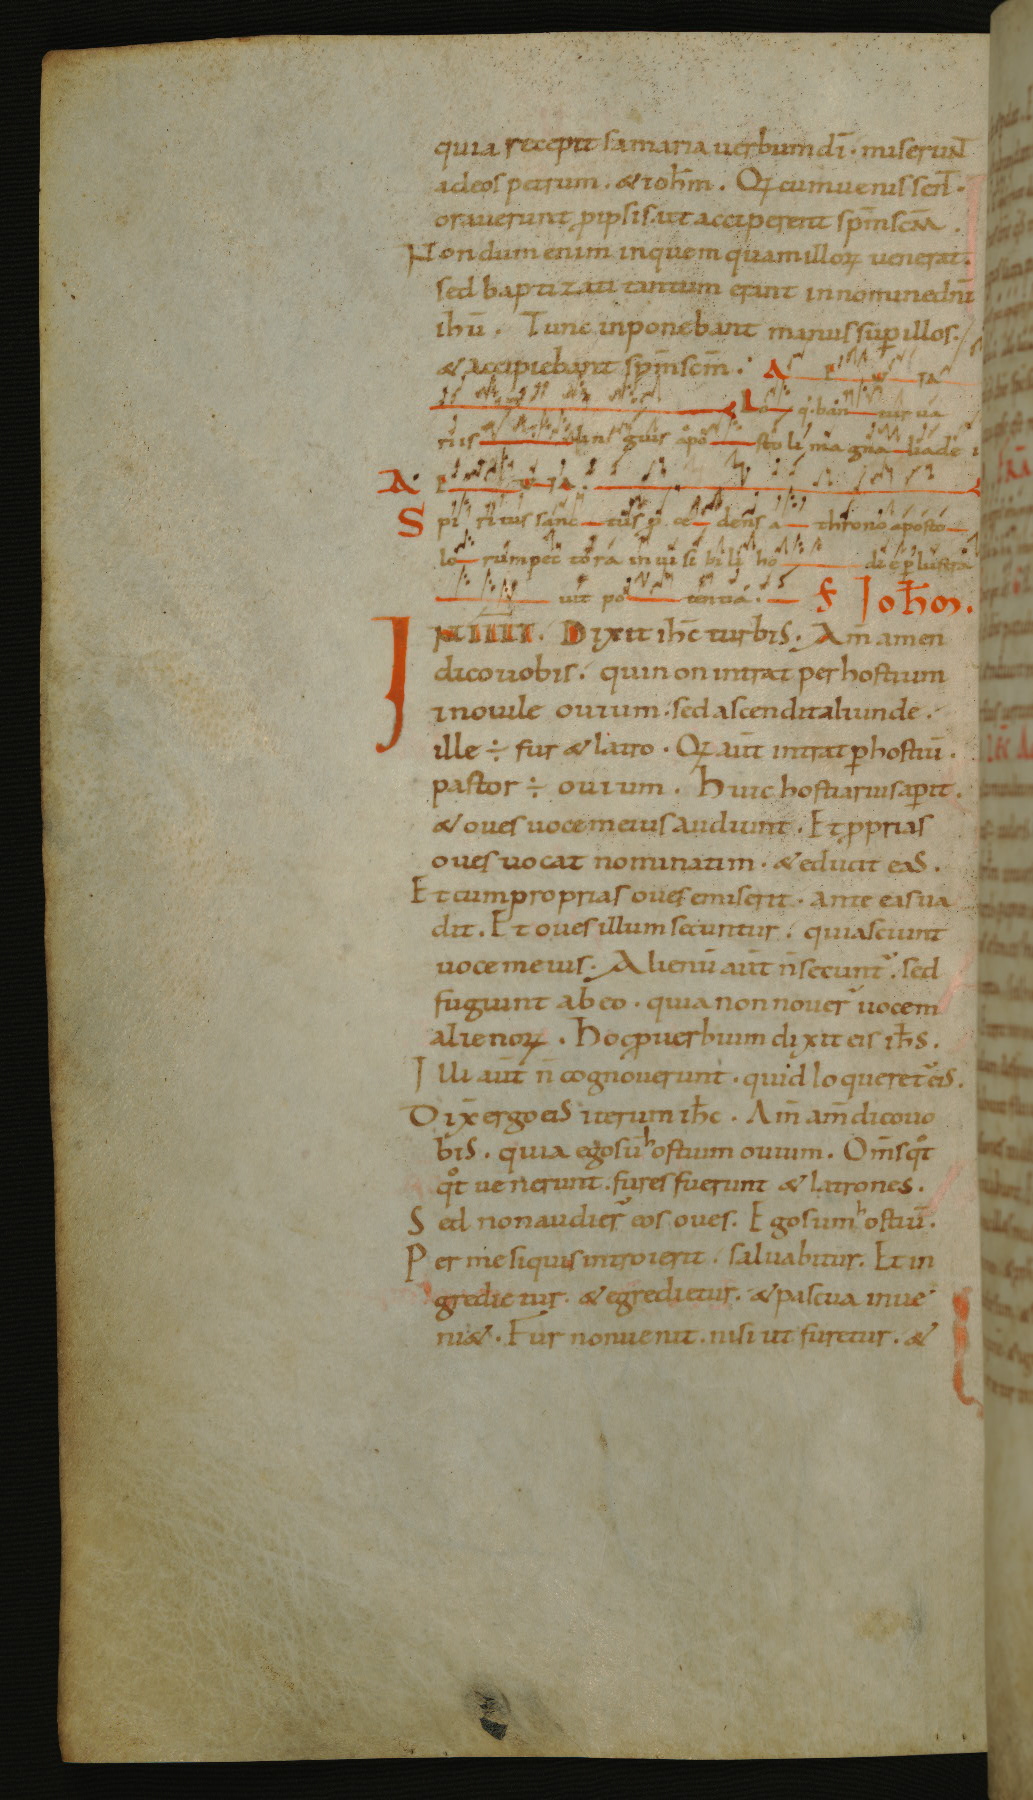 quia recepit samaria uerbum dī · miserunT̄
adeos petrum · & ioh̄m · Qꝫ cumuenissen̄t ·
orauerunt ꝓipsis ut acciperent sp̄m sc̄m .
Nondum enim inquem quam illoꝝ uenerat .
sed baptizati tantum erant in nomine dn̄i
ihū . Tunc inponebant manus sup̄ illos .
& accipiebant sp̄m sc̄m . A E W IA
Lo q̇ ban tur ua
riis lin guis apo stoli magna lia dei
A E W IA
Spi ritus sanc tus p ce dens a throno aposto
lo rum pec tora in ui si bi li ho di e p̄ lustra
uit po tentia . F Joh̄m .
IN IIII . Dixit ih̄c turbis . Am̄ amen
dico uobis . qui non intrat per hostium
in ouile ouium . sed ascendit aliunde .
ille ÷ fur & latro . Qꝫ aūt intrat p̄ hostiū .
pastor ÷ ouium . Huic hostiarius ap̄it .
& oues uocem eius audiunt . Et ꝓprias
oues uocat nominatim . & educit eas .
Et cum proprias oues emiserit . ante eas ua
dit . Et oues illum secuntur . quia sciunt
uocem eius . Alienū aūt n̄ secunt᷑ . sed
fugiunt ab eo . quia non nouer̄ uocem
alienoꝝ . Hoc ꝓuerbium dixit eis ih̄s .
Illi aūt n̄ cognouerunt . quid loqueret᷑ eis .
Dix̄ ergo eis iterum ih̄c . Am̄ am̄ dico uo
bis . quia ego sū hostium ouium . Om̄s qͦt
qͦt uenerunt . fures fuerunt & latrones .
Sed non audier̄ eos oues . Ego sum hostiū .
Per me siquis introierit . saluabitur . Et in
gredietur . & egredietur . & pascua inue
ni& . Fur non uenit . nisi ut furetur . &